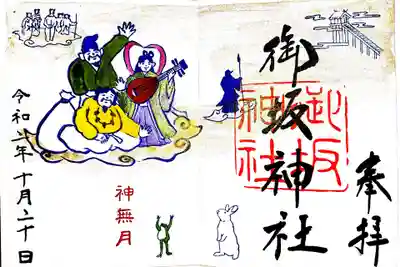 奉拝
御坂神社
御坂
神社
神無月
令和六年十月二十日